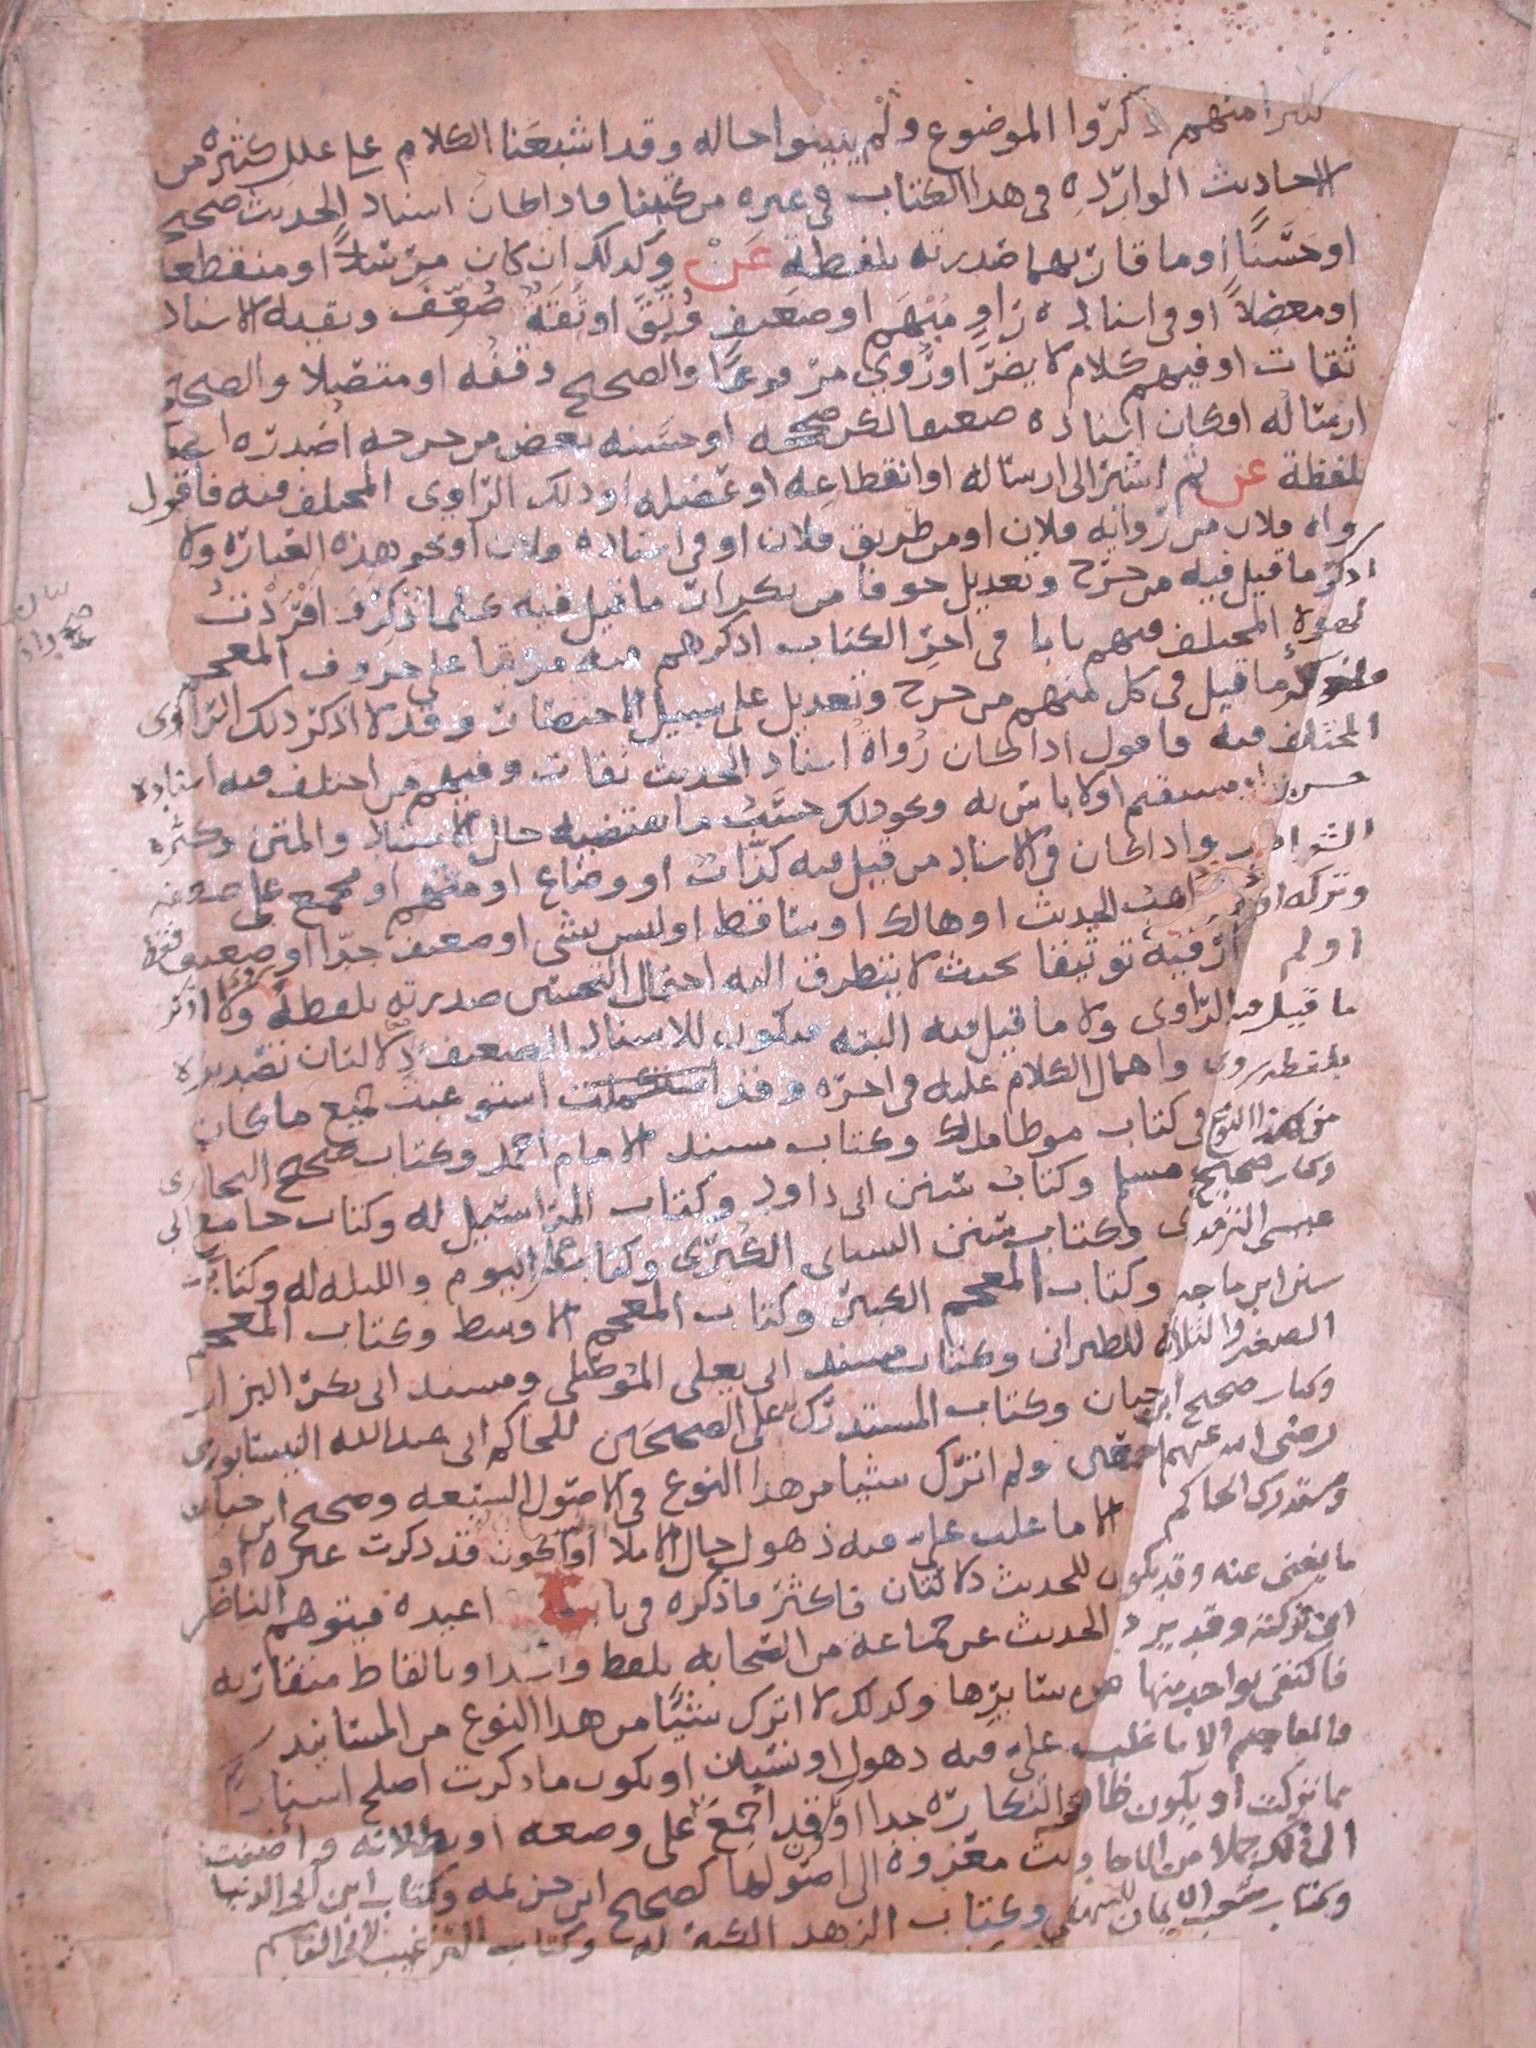 كثيرا منهم ذكروا الموضوع ولم يبينوا حاله وقد اشبعنا الكلام على علل كثيره من
الاحاديث الوارده في هذا الكتاب في غيره من كتبنا فاذا كان اسناد الحديث صحيحا
او حسنًا او ما قاربهما صدرته بلفظة عن وكذلك ان كان مرسلاً او منقطعا
او معضلاً او في اسناده راوٍ مبهم او ضعيف وُثِّق او ثقة ضُعِّف وبقيه الاسناد
ثقات او فيهم كلام لا يضر او رُوي مرفوعًا والصحيح وقفه او متصلا والصحيح
ارساله او كان اسناده ضعيفا لكن صححه او حسنه بعض من خرجه اصدره ايضا
بلفظة عن ثم اشير الى ارساله او انقطاعه او عضله او ذلك الراوي المختلف فيه فاقول
رواه فلان من روايه فلان او من طريق فلان او في اسناده فلان او نحو هذه العباره ولا
اذكر ما قيل فيه من جرح وتعديل خوفا من تكرار ما قيل فيه كلما ذكر وافردت
لهولاء المختلف فيهم بابا في اخر الكتاب اذكرهم فيه مرتبا على حروف المعجم
واذكر ما قيل في كل منهم من جرح وتعديل على سبيل الاختصار وقد لا اذكر ذلك الراوي
المختلف فيه فاقول اذا كان رُواة اسناد الحديث ثقات وفيهم من اختلف فيه اسناده
حسن او مستقيم او لا باس به ونحو ذلك حسب ما يقتضيه حال الاسناد والمتن وكثره
الشواهد واذا كان في الاسناد من قيل فيه كذاب او وضاع او متهم او مجمع على ضعفه
وتركه او ذاهب الحديث او هالك او ساقط او ليس بشي او ضعيف جدا او ضعيف فقط
او لم ار فيه توثيقا بحيث لا يتطرق اليه احتمال التحسين صدرته بلفظة روي ولا اذكر
ما قيل فيه الراوي ولا ما قيل فيه البته فيكون للاسناد الضعيف دلالتان تصديره
بلفظه روي واهمال الكلام عليه في اخره وقد استوعبت جميع ما كان
من هذا النوع في كتاب موطا مالك وكتاب مسند الامام احمد وكتاب صحيح البخاري
وكتاب صحيح مسلم وكتاب سنن ابي داود وكتاب المراسيل له وكتاب جامع ابي
عيسى الترمذي وكتاب سنن النسائي الكبرى وكتاب عمل اليوم والليله له وكتاب
سنن ابن ماجه وكتاب المعجم الكبير وكتاب المعجم الاوسط وكتاب المعجم
الصغير الثلاثة للطبراني وكتاب مسند ابي يعلى الموصلي ومسند ابي بكر البزار
وكتاب صحيح ابن حبان وكتاب المستدرك على الصحيحين للحاكم ابي عبد الله النيسابوري
رضي الله عنهم اجمعين ولم اترك شيا من هذا النوع في الاصول السبعه وصحيح ابن حبان
ومستدرك الحاكم الا ما غلب علي فيه ذهول حال الاملا او اكون قد ذكرت غيره او
ما يغني عنه وقد يكون للحديث دلالتان فاكثر فاذكره في باب اعيده فيتوهم الناظر
اني تركته وقد يرد الحديث عن جماعه من الصحابه بلفظ واحد او بالفاظ متقاربه
فاكتفي بواحد منها عن سايرها وكذلك لا اترك شيًا من هذا النوع من المسانيد
والمعاجم الا ما غلب علي فيه ذهول او نسيان او يكون ما ذكرت اصلح اسنادا
مما تركت او يكون ظاهر النكاره جدا او قد اُجمع على وضعه او بطلانه واضفت
الى ذلك جملا من الاحاديث معزوة الى اصولها كصحيح ابن خزيمه وكتاب ابن ابي الدنيا
وكتاب شعب الايمان للبيهقي وكتاب الزهد الكبير له وكتاب الترغيب لابي القاسم